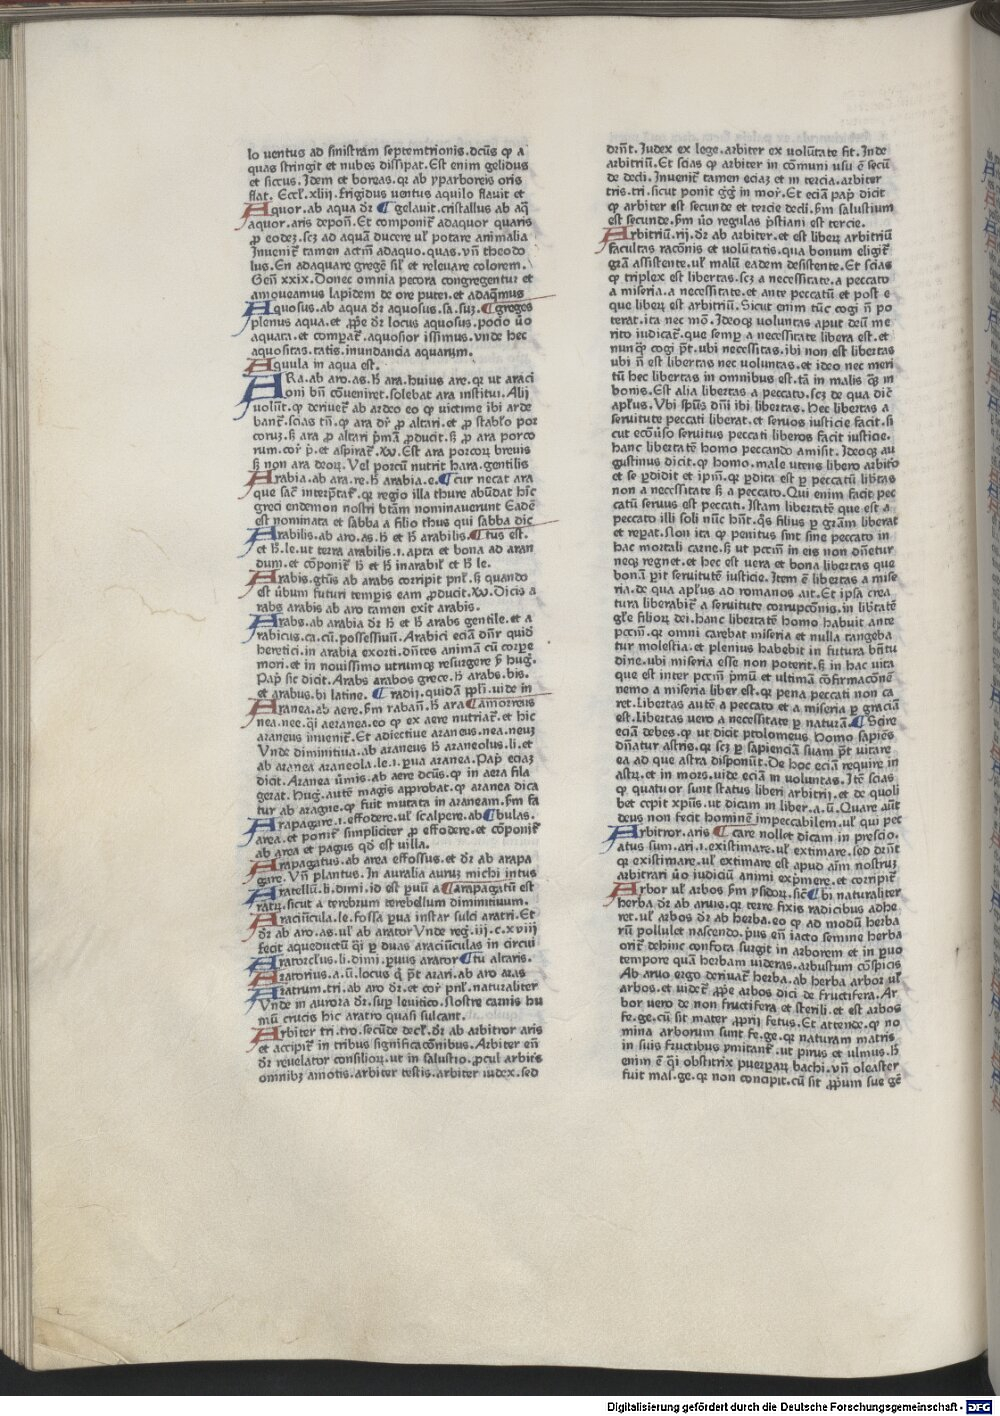 lo uentus ad sinistram septemtrionis.dcūs ꝙ a
quas stringit et nubes dissipat.Est enim gelidus
et siccus.Idem et boreas.qꝛ ab yparboreis oris
flat.Eccl̓.xliii.frigidus uentus aquilo flauit et
Aquor.ab aqua dr̄ ¶ gelauit.cristallus ab aq̄
aquor.aris depon̄.Et componit᷑ adaquor quaris
ꝓ eodeꝫ.scꝫ ad aquā ducere ul̓ potare animalia
Inuenit᷑ tamen actm̄ adaquo.quas.vn̄ theodo
lus.En adaquare gregē sil̓ et releuare colorem.
Gen̄ xxix.Donec omnia pecora congregentur et
amoueamus lapidem de ore putei.et adaq̄mus
Aquosus.ab aqua dr̄ aquosus.sa.suꝫ.¶greges
plenus aqua.et ꝓpe dr̄ locus aquosus.pocio ūo
aquata.et comꝑat᷑.aquosior issimus.vnde hec
aquositas.tatis.inundancia aquarum.
Aquula in aqua est.
ARA.ab aro.as.ħ ara.huius are.qꝛ ut araci
oni bn̄ cōueniret.solebat ara institui.Alij
uolūt.ꝙ deriuet᷑ ab ardeo eo ꝙ uictime ibi arde
bant᷑.scias tn̄.ꝙ ara dr̄ ꝓ altari.et ꝓ stabl̓o poꝛ
coruꝫ.ꝫ ara ꝓ altari p̄mā ꝓducit.ꝫ ꝓ ara porco
rum.cor̄ p̄.et aspirat᷑.Xv̓.Est ara porcoꝝ breuis
ꝫ non ara deoꝝ.Vel porcū nutrit hara.gentilis
Arabia.ab ara.re.ħ arabia.e.¶cur necat ara
que sac̄ interp̄tat᷑.qꝛ regio illa thure abūdat hīc
greci endemon nostri btām nominauerunt Eadē
est nominata et sabba a filio thus qui sabba dic̄
Arabilis.ab aro.as.ħ et ħ arabilis.¶tus est.
et ħ.le.ut terra arabilis.i.apta et bona ad aran
dum.et cōponit᷑ ħ et ħ inarabil̓ et ħ le.
Arabis.gtūs ab arabs corripit pnl̓.ꝫ quando
est ūbum futuri tempis eam ꝓducit.Xv̓.Dicis a
rabs arabis ab aro tamen exit arabis.
Arabs.ab arabia dr̄ ħ et ħ arabs gentile.et a
rabicus.ca.cū.possessiuū.Arabici eciā dn̄r quidā
heretici.in arabia exorti.dn̄tes animā cū corꝑe
mori.et in nouissimo utrumqꝫ resurgere ẜ hug̓.
Pap̄ sic dicit.Arabs arabos grece.ħ arabs.bis.
et arabus.bi latine. ¶radij.quidā ppl̓i.uide in
Aranea.ab aere.ẜm raban̄.ħ ara¶amorreus
nea.nee.q̄i aeranea.eo ꝙ ex aere nutriat᷑.et hic
araneus inuenit᷑.Et adiectiue araneus.nea.neuꝫ
Vnde diminitiua.ab araneus ħ araneolus.li.et
ab aranea araneola.le.i.ꝑua aranea.Pap̄ eciaꝫ
dicit.Aranea ūmis.ab aere dcūs.ꝙ in aera fila
gerat.Hug̓.autē magis approbat.ꝙ aranea dica
tur ab aragne.ꝙ fuit mutata in araneam.ẜm fa
Arapagare.i.effodere.ul̓ scalpere.ab¶bulas.
area.et ponit᷑ simpliciter ꝓ effodere.et cōponit᷑
ab area et pagus qd̓ est uilla.
Arapagatus.ab area effossus.et dr̄ ab arapa
gare.Vn̄ plantus.In auralia auruꝫ michi intus
Aratellū.li.dimi.id est ꝑuū a¶arapagatū est
ratꝝ.sicut a terebrum terebellum diminitiuum.
Araciūcula.le.fossa ꝑua instar sulci aratri.Et
dr̄ ab aro.as.ul̓ ab arator Vnde reg̓.iii.c.xviii
fecit aqueductū q̄i ꝑ duas araciūculas in circui
Aratorcl̓us.li.dimi.ꝑuus arator¶tu altaris.
Aratorius.a.ū.locus q̄ p̄t arari.ab aro aras
Aratrum.tri.ab aro dr̄.et cor̄ pnl̓.naturaliter
Vnde in aurora dr̄.suꝑ leuitico.Nostre carnis hu
mū crucis hic aratro quasi sulcant.
Arbiter tri.tro.secūde decl̓.dr̄ ab arbitror aris
et accipit᷑ in tribus significacōnibus.Arbiter en̄
dr̄ reuelator consilioꝝ.ut in salustio.ꝓcul arbiꝰs
omnibꝫ amotis.arbiter testis.arbiter iudex.sed
drn̄t.Iudex ex lege.arbiter ex uolūtate fit.Inde
arbitriū.Et scias ꝙ arbiter in cōmuni usu ē secū
de decli.Inuenit᷑ tamen eciaꝫ et in tercia.arbiter
tris.tri.sicut ponit g̓g̓ in mor̄.Et eciā pap̄ dicit
ꝙ arbiter est secunde et tercie decli.ẜm salustium
est secunde.ẜm ūo regulas p̄stiani est tercie.
Arbitriū.rij.dr̄ ab arbiter.et est liberꝫ arbitriū
facultas racōnis et uolūtatis.qua bonum eligit᷑
grā assistente.ul̓ malū eadem desistente.Et scias
ꝙ triplex est libertas.scꝫ a necessitate.a peccato
a miseria.a necessitate.et ante peccatū et post e
que liberꝫ est arbitriū.Sicut enim tūc cogi n̄ po
terat.ita nec mō.Ideoqꝫ uoluntas aput deū me
rito iudicat᷑.que semꝑ a necessitate libera est.et
nunqꝫ cogi p̄t.ubi necessitas.ibi non est libertas
ubi n̄ est libertas nec uoluntas.et ideo nec meri
tū hec libertas in omnibus est.tā in malis qꝫ in
bonis.Est alia libertas a peccato.scꝫ de qua dic̄
apl̓us.Vbi spūs dn̄i ibi libertas.Hec libertas a
seruitute peccati liberat.et seruos iusticie facit.si
cut ecōuso seruitus peccati liberos facit iusticie.
hanc libertatē homo peccando amisit.Ideoqꝫ au
gustinus dicit.ꝙ homo.male utens libero arbiꝰo
et se ꝑdidit et ipm̄.qꝛ ꝑdita est ꝑ peccatū libtas
non a necessitate ꝫ a peccato.Qui enim facit pec
catū seruus est peccati.Istam libertatē que est a
peccato illi soli nūc hn̄t.q̄s filius ꝑ grām liberat
et reꝑat.Non ita ꝙ penitus sint sine peccato in
hac mortali carne.ꝫ ut pccm̄ in eis non dn̄etur
neqꝫ regnet.et hec est uera et bona libertas que
bonā ꝑit seruitutē iusticie.Item ē libertas a mise
ria.de qua apl̓us ad romanos ait.Et ipsa crea
tura liberabit᷑ a seruitute corrupcōnis.in libtatē
gl̓e filioꝝ dei.hanc libertatē homo habuit ante
pccm̄.qꝛ omni carebat miseria et nulla tangeba
tur molestia.et plenius habebit in futura bn̄tu
dine.ubi miseria esse non poterit.ꝫ in hac uita
que est inter pccm̄ p̄mū et ultimā cōfirmacōnē
nemo a miseria liber est.qꝛ pena peccati non ca
ret.Libertas autē a peccato et a miseria ꝑ graciā
est.Libertas uero a necessitate ꝑ naturā.¶Scire
eciā debes.ꝙ ut dicit ptolomeus homo sapiēs
dn̄atur astris.qꝛ scꝫ ꝑ sapienciā suam p̄t uitare
ea ad que astra disponūt.De hoc eciā require in
astꝝ.et in mors.uide eciā in uoluntas.Itē scias
ꝙ quatuor sunt status liberi arbitrij.et de quoli
bet cepit xpiūs.ut dicam in liber.a.ū.Quare aūt
deus non fecit hominē impeccabilem.ul̓ qui pec
Arbitror.aris ¶care nollet dicam in prescio.
atus sum.ari.i.existimare.ul̓ extimare.sed drn̄t
qꝛ existimare.ul̓ extimare est apud aīm nostruꝫ
arbitrari ūo iudiciū animi exp̄mere.et corripit᷑
Arbor ul̓ arbos ẜm ysidoꝝ.sic̄¶bi naturaliter
herba dr̄ ab aruis.qꝛ terre fixis radicibus adhe
ret.ul̓ arbos dr̄ ab herba.eo ꝙ ad modū herba
rū pollulet nascendo.p̄us en̄ iacto semine herba
orit᷑ dehinc confota surgit in arborem et in ꝑuo
tempore quā herbam uideras.arbustum cōspicis
Ab aruo ergo deriuat᷑ herba.ab herba arbor ul̓
arbos.et uidet᷑ ꝓpe arbos dici de fructifera.Ar
bor uero de non fructifera et sterili.et est arbos
fe.ge.cū sit mater ꝓprij fetus.Et attende.ꝙ no
mina arborum sunt fe.ge.qꝛ naturam matris
in suis fructibus ymitant᷑.ut pirus et ulmus.ħ
enim ē q̄i obstitrix puerꝑaꝝ bachi.vn̄ oleaster
fuit mas.ge.qꝛ non concipit.cū sit ꝓpum sue gē
Digitalisierung gefördert durch die Deutsche Forschungsgemeinschaft - DFG